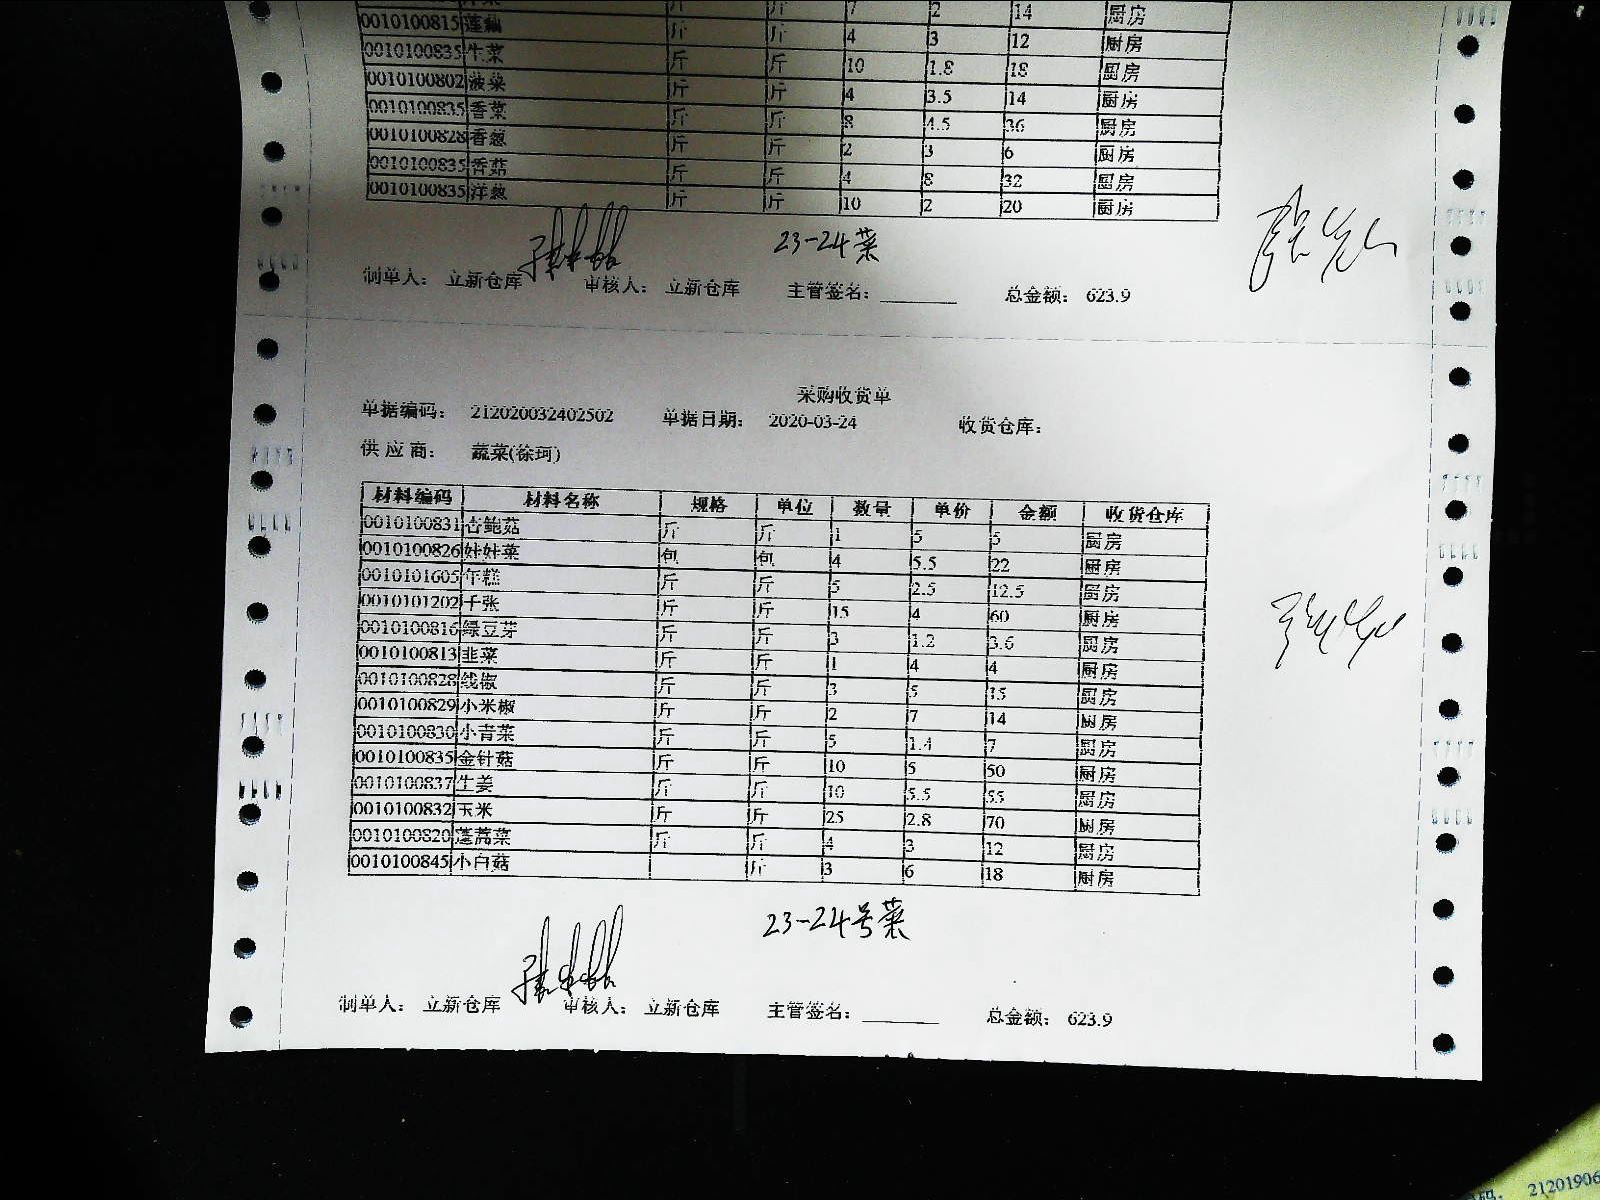 7 2 14 厨房
0010100815 莲藕 斤 斤 4 3 12 厨房
0010100835 生菜 斤 斤 10 1.8 18 厨房
0010100802 菠菜 斤 斤 4 3.5 14 厨房
0010100835 香菜 斤 斤 8 4.5 36 厨房
0010100828 香葱 斤 斤 2 3 6 厨房
0010100835 香菇 斤 斤 4 8 32 厨房
0010100835 洋葱 斤 斤 10 2 20 厨房
23-24菜
制单人： 立新仓库 审核人： 立新仓库 主管签名：________ 总金额： 623.9
采购收货单
单据编码： 212020032402502 单据日期： 2020-03-24 收货仓库：
供 应 商： 蔬菜(徐珂)
材料编码 材料名称 规格 单位 数量 单价 金额 收货仓库
0010100831 杏鲍菇 斤 斤 1 5 5 厨房
0010100826 娃娃菜 包 包 4 5.5 22 厨房
0010101605 年糕 斤 斤 5 2.5 12.5 厨房
0010101202 千张 斤 斤 15 4 60 厨房
0010100816 绿豆芽 斤 斤 3 1.2 3.6 厨房
0010100813 韭菜 斤 斤 1 4 4 厨房
0010100828 线椒 斤 斤 3 5 15 厨房
0010100829 小米椒 斤 斤 2 7 14 厨房
0010100830 小青菜 斤 斤 5 1.4 7 厨房
0010100835 金针菇 斤 斤 10 5 50 厨房
0010100837 生姜 斤 斤 10 5.5 55 厨房
0010100832 玉米 斤 斤 25 2.8 70 厨房
0010100820 蓬蒿菜 斤 斤 4 3 12 厨房
0010100845 小白菇 斤 3 6 18 厨房
23-24号菜
制单人： 立新仓库 审核人： 立新仓库 主管签名：________ 总金额： 623.9
21201906